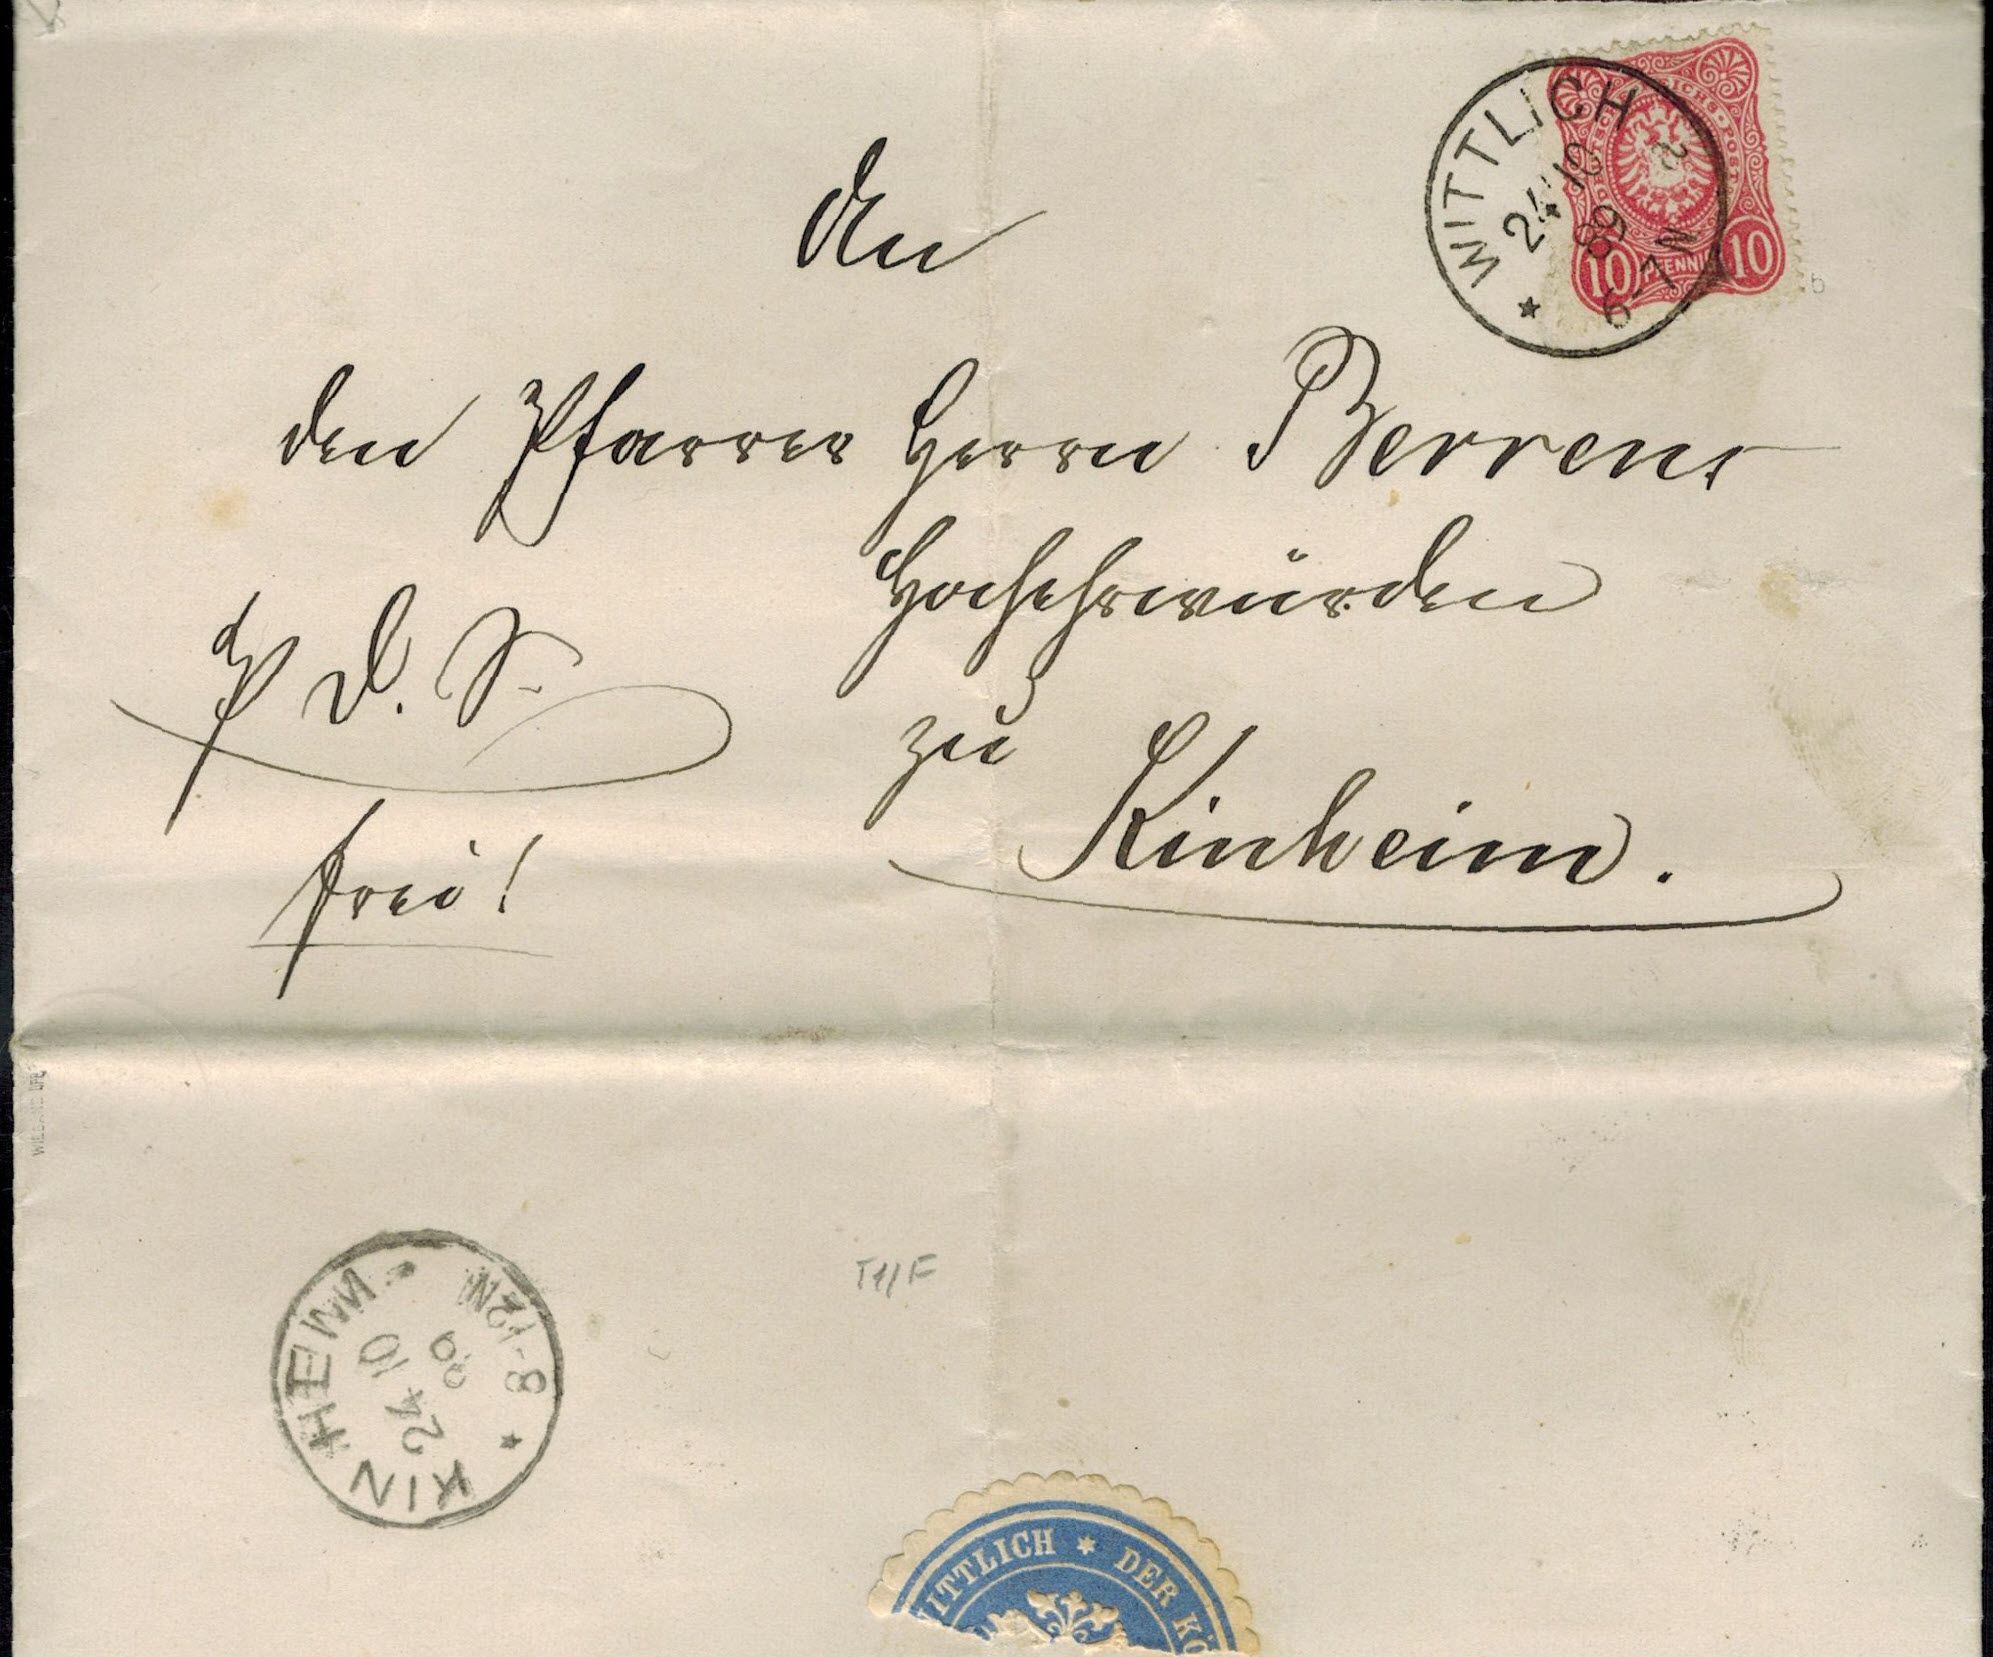 An
den Pfarrer Herrn Berrens
Hochehrwürden
zu
Kinheim.
P. D. S.
frei!
WITTLICH
24 10
89
6-7 N
a
DEUTSCHE REICHS-POST
10 PFENNIG 10
KINHEIM
24 10
89
8-12 N
T1/F
b
WITTLICH * DER KÖ